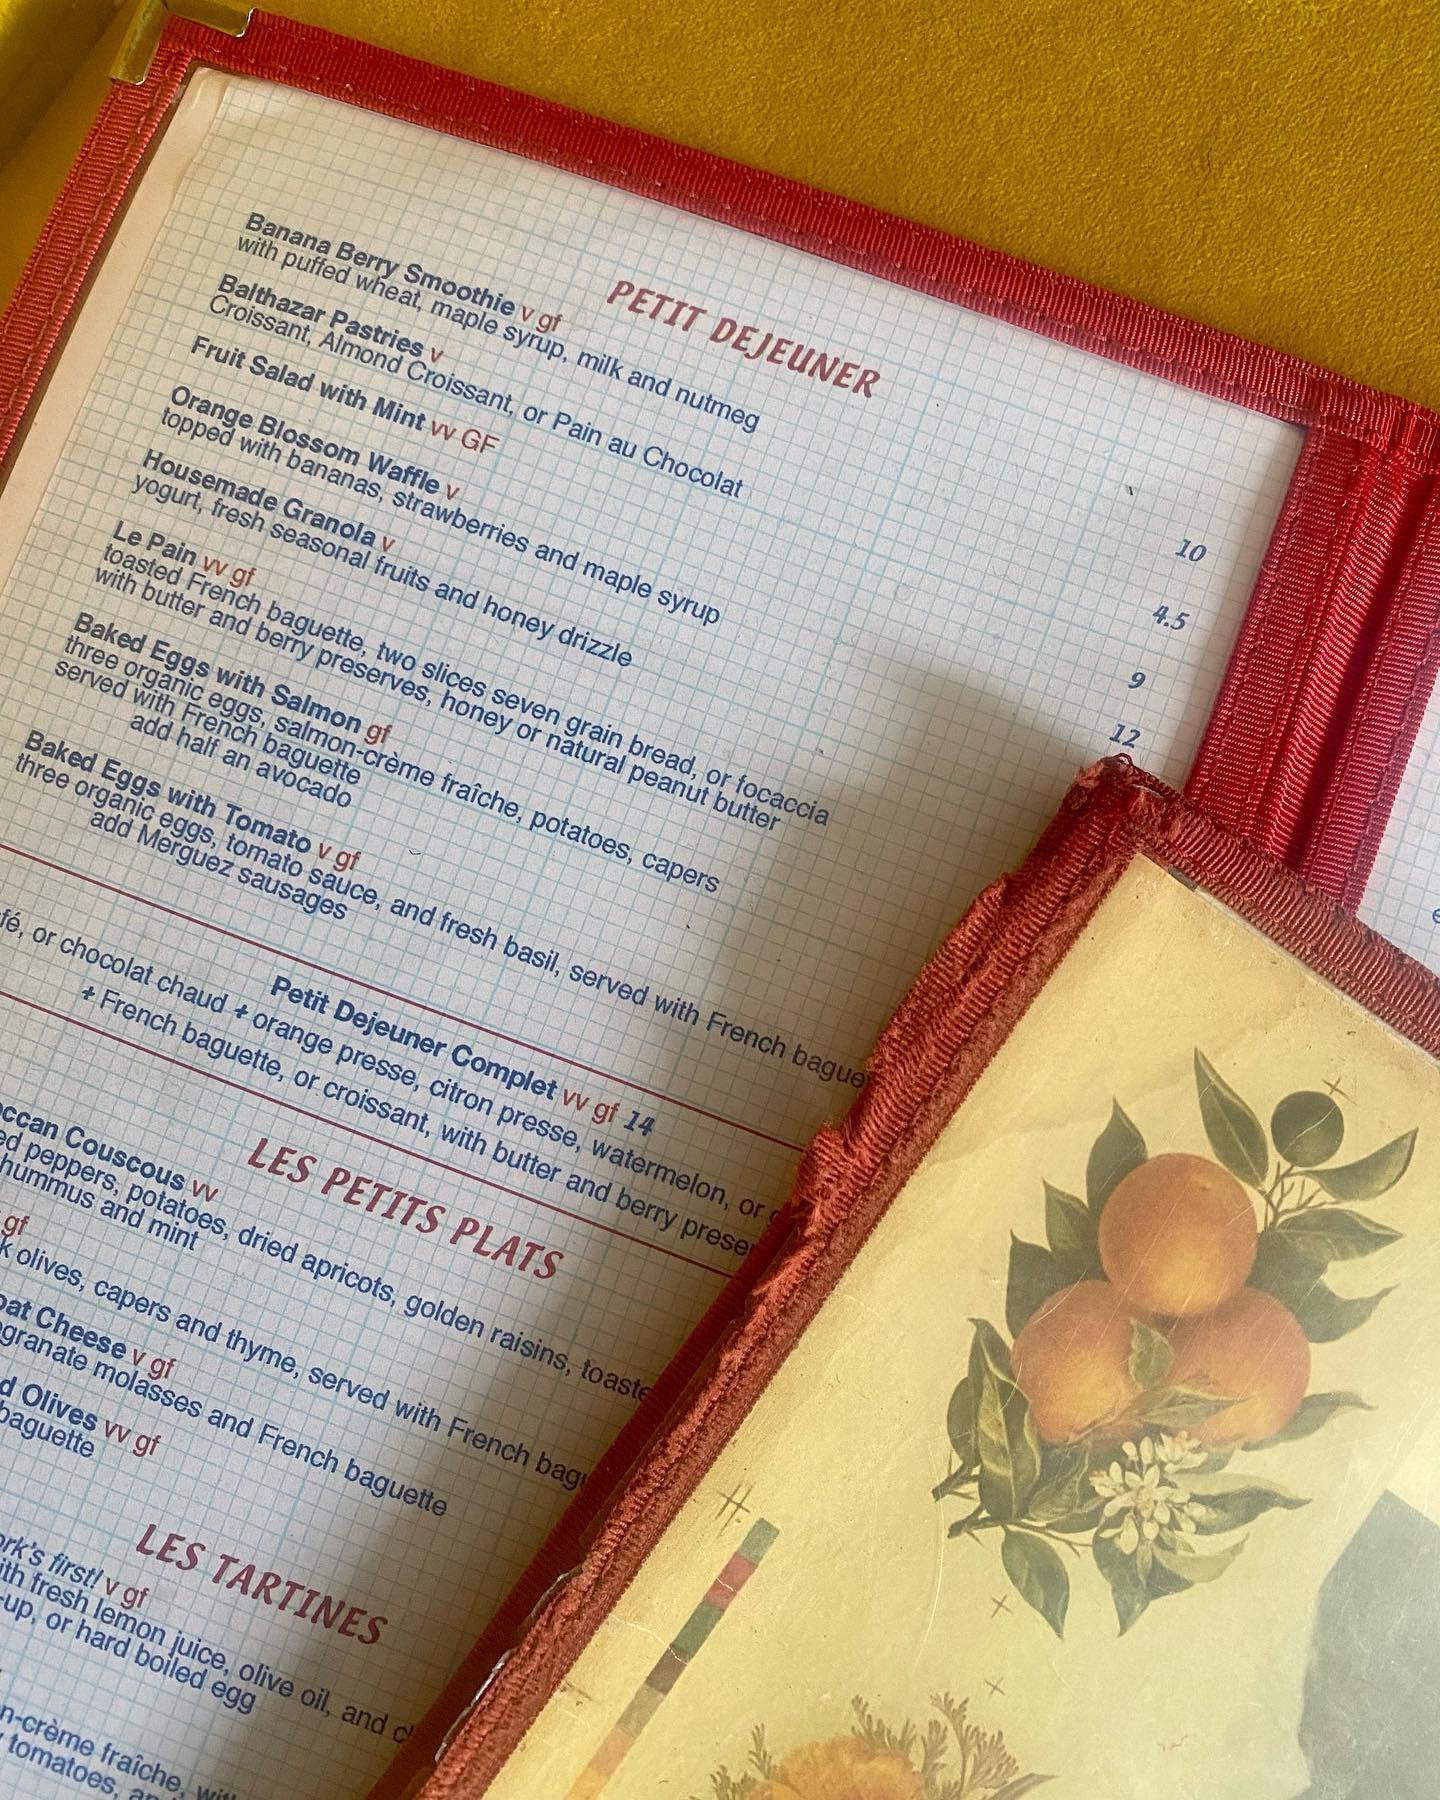 PETIT DEJEUNER
Banana Berry Smoothie v gf 10
with puffed wheat, maple syrup, milk and nutmeg
Balthazar Pastries v 4.5
Croissant, Almond Croissant, or Pain au Chocolat
Fruit Salad with Mint vv GF 9
Orange Blossom Waffle v 12
topped with bananas, strawberries and maple syrup
Housemade Granola v
yogurt, fresh seasonal fruits and honey drizzle
Le Pain vv gf
toasted French baguette, two slices seven grain bread, or focaccia
with butter and berry preserves, honey or natural peanut butter
Baked Eggs with Salmon gf
three organic eggs, salmon-crème fraîche, potatoes, capers
served with French baguette
add half an avocado
Baked Eggs with Tomato v gf
three organic eggs, tomato sauce, and fresh basil, served with French
add Merguez sausages
Petit Dejeuner Complet vv gf 14
or chocolat chaud + orange presse, citron presse, watermelon, or
+ French baguette, or croissant, with butter and berry
LES PETITS PLATS
Couscous vv
peppers, potatoes, dried apricots, golden raisins,
hummus and mint
gf
olives, capers and thyme, served with French
Cheese v gf
molasses and French baguette
Olives vv gf
baguette
LES TARTINES
first! v gf
fresh lemon juice, olive oil, and
or hard boiled egg
fraîche,
tomatoes,